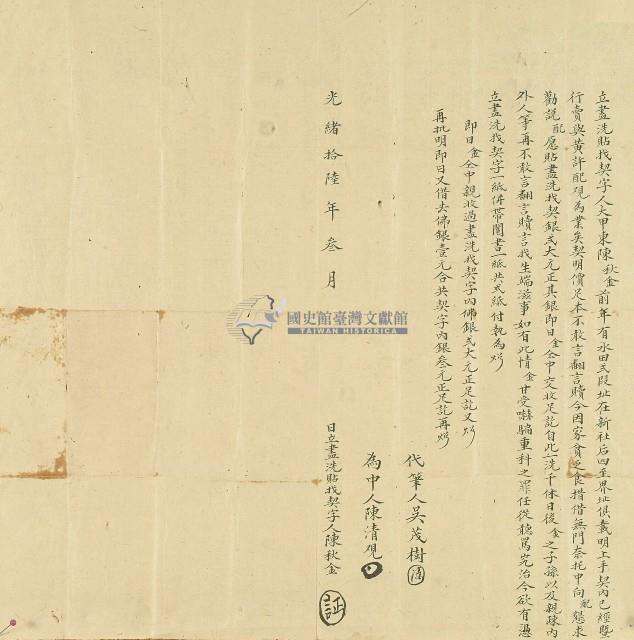 立盡洗貼找契字人大甲東陳秋金前年有水田弍段址在新社后四至界址俱載明上手契內已經墾
行賣與黃許配硯為業矣契明價足本不敢言翻言贖今因家貧乏食措借無門奈托中向配懇求
勸說配愿貼盡洗找契銀弍大元正其銀即日金仝中交收足訖自此一洗千休日後金之子孫以及親疎內
外人等再不敢言翻言贖言找生端滋事如有此情金甘受嚇騙重科之罪任從聽罵究治今欲有憑
立盡洗找契字一紙併帶鬮書一紙共弍紙付執為炤
即日金仝中親收過盡洗找契字內佛銀弍大元正足訖又炤
再批明即日又借去佛銀壹元合共契字內銀叁元正足訖再炤
代筆人吳茂樹
為中人陳清硯
光緒拾陸年叁月
日立盡洗貼找契字人陳秋金
証
國史館臺灣文獻館
TAIWAN HISTORICA